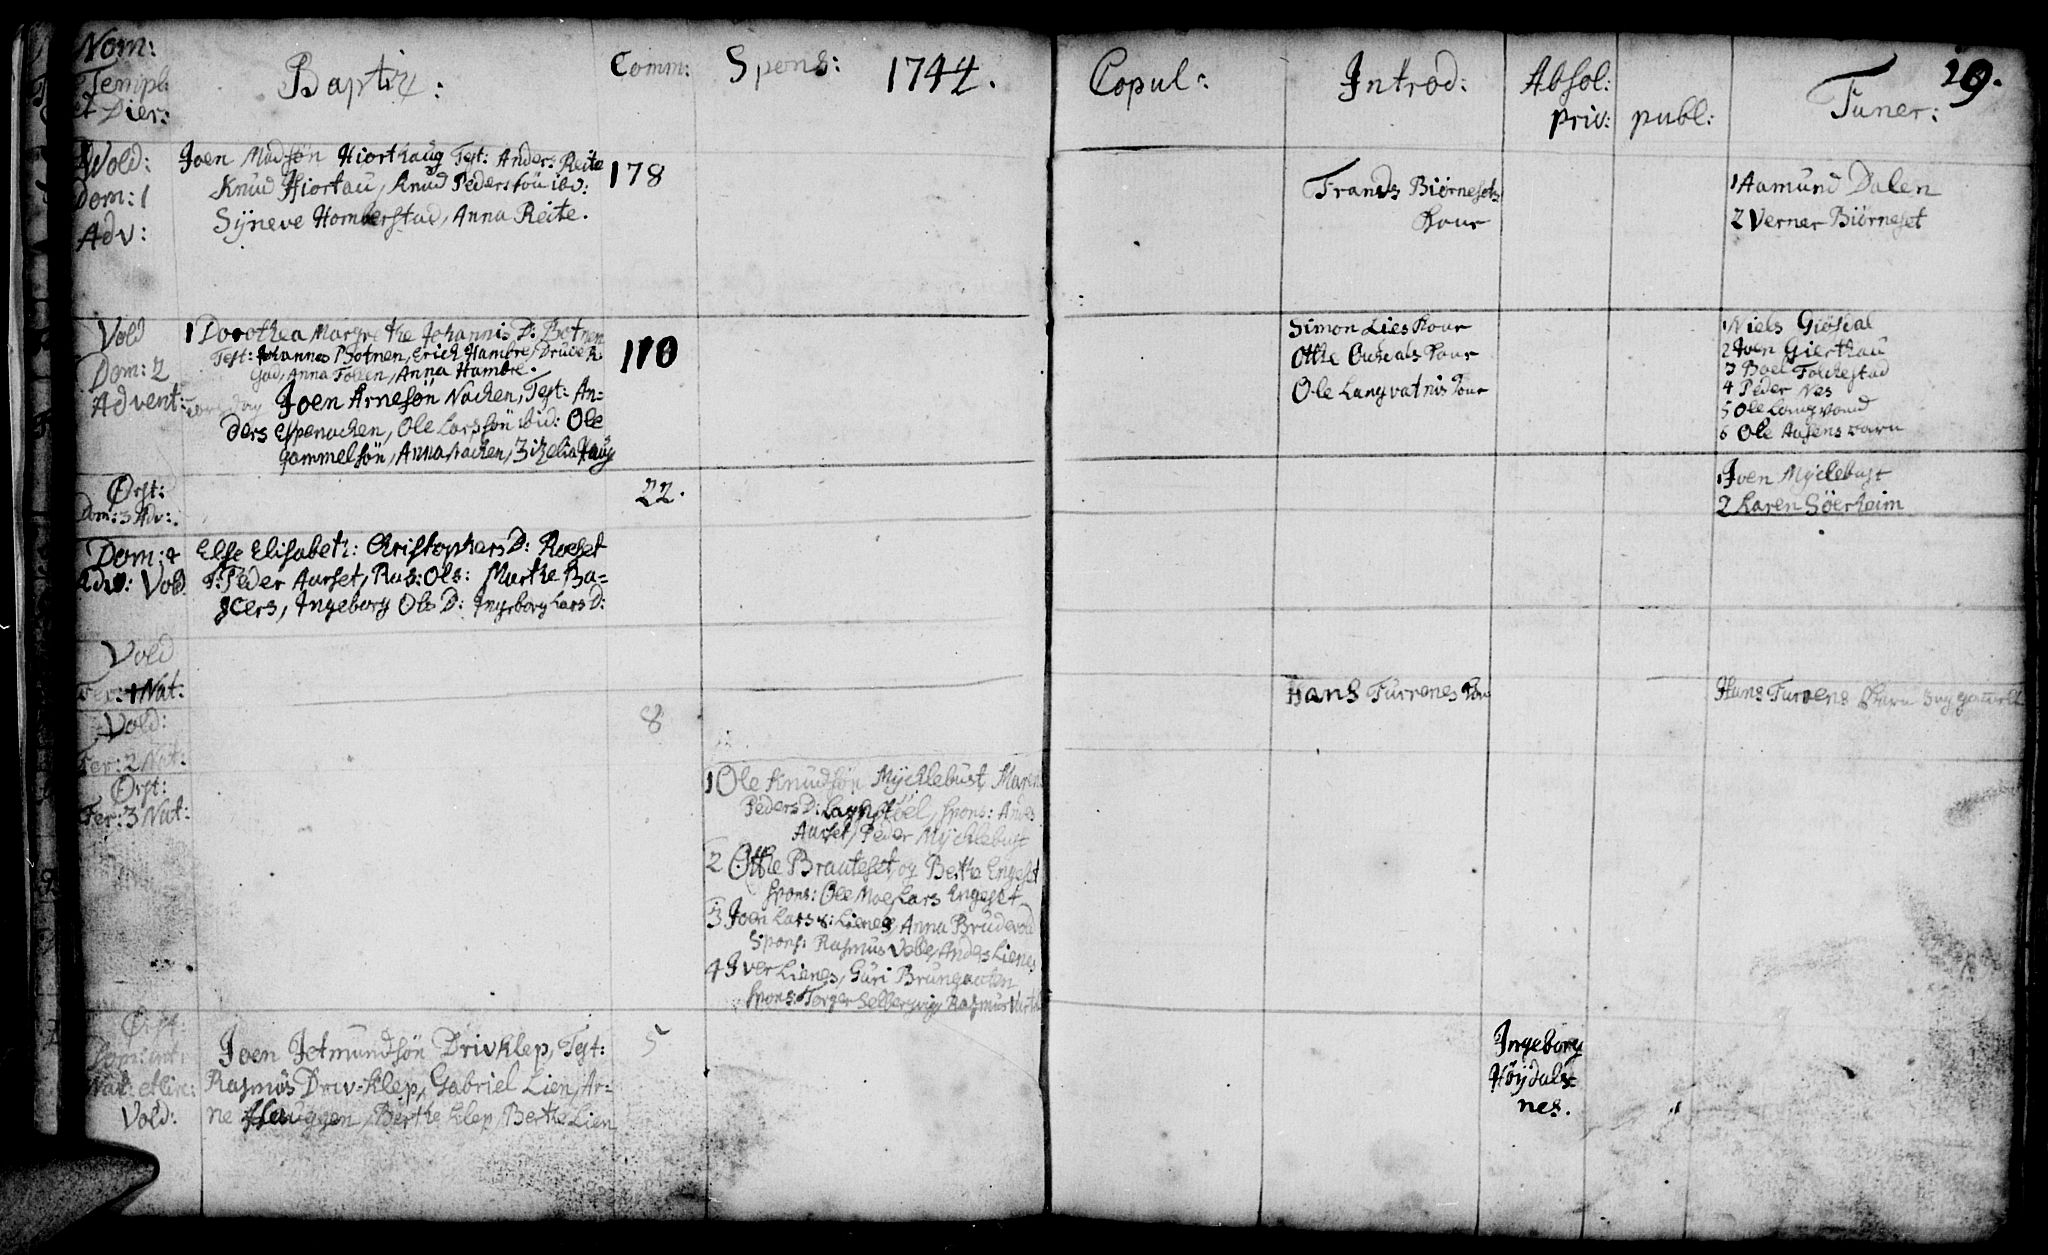 Nom:
Templ:
et Dier:
Baptiz:
Comm:
Spons:
1744.
Copul:
Introd:
Absol:
priv:
publ:
Funer:
19.
Vold:
Dom: 1
Adv:
Joen Madsön Hiorthaug Test: Anders Reite
Knud Hiortau, Knud Pederssön ibd:
Syneve Homberstad, Anna Reite.
178
Frands Biørnesets
Kone
1 Aamund Dalen
2 Verner Biörneset
Vold
Dom: 2
Advent:
1 Dorothea Margrethe Johannis D: Botnen
Test: Johannes Botnen, Erich Hambre,
Gad, Anna Folien, Anna Hambre.
Joen Arnesön Nachen, Test: An-
ders Espenachen, Ole Larssön ibid: Ole
Gammelsön, Anna Nachen, Zizelia Haug
110
Simon Lies Kone
Otthe Kone
Ole Langvatnis Kone
1 Niels Giösdal
2 Joen Gierthau
3 Boel Folchestad
4 Peder Nes
5 Ole Langvand
6 Ole Aasens barn
Ørst:
Dom: 3 Adv:
22.
1 Joen Myclebust
2 Karen Söerheim
Dom: 4
Adv: Vold
Else Elisabeth: Christophers D: Roeset
T: Peder Aurset, Ras: Ols: Marthe Ba-
Ingeborg Ols D: Ingeborg Lars D:
Vold
Fer: 1 Nat:
Hans Furrenes Kone
Hans Furrens Barn
Vold:
Fer: 2 Nat:
8
Ørst:
Fer: 3 Nat:
1 Ole Knudsön Mychlebust, Maren
Peders D: spons: Anders
Aurset, Peder Mychlebust
2 Otthe Brauteset, og Berthe Engeset
spons: Ole Moe, Lars Engeset
3 Joen Larss: Lienes, Anna Brudevold
Spons: Rasmus Velle, Anders Lienes
4 Iver Lienes, Guri Brungaaten
spons: Torger Rasmus
Ørst:
Dom: int:
Nat: et Circ:
Vold:
Joen Jetmundsön Drivklep, Test:
Rasmus Driv-klep, Gabriel Lien, Ar-
ne Hauggen, Berthe Klep, Berthe Lien
5
Ingeborg
Höydals-
nes.